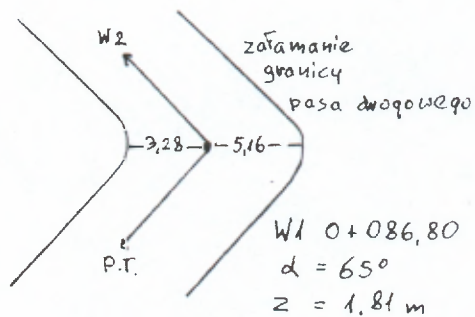 W2
załamanie
granicy
pasa drogowego
3,28
5,16
P.T.
W1 0+086,80
α = 65°
z = 1,81 m